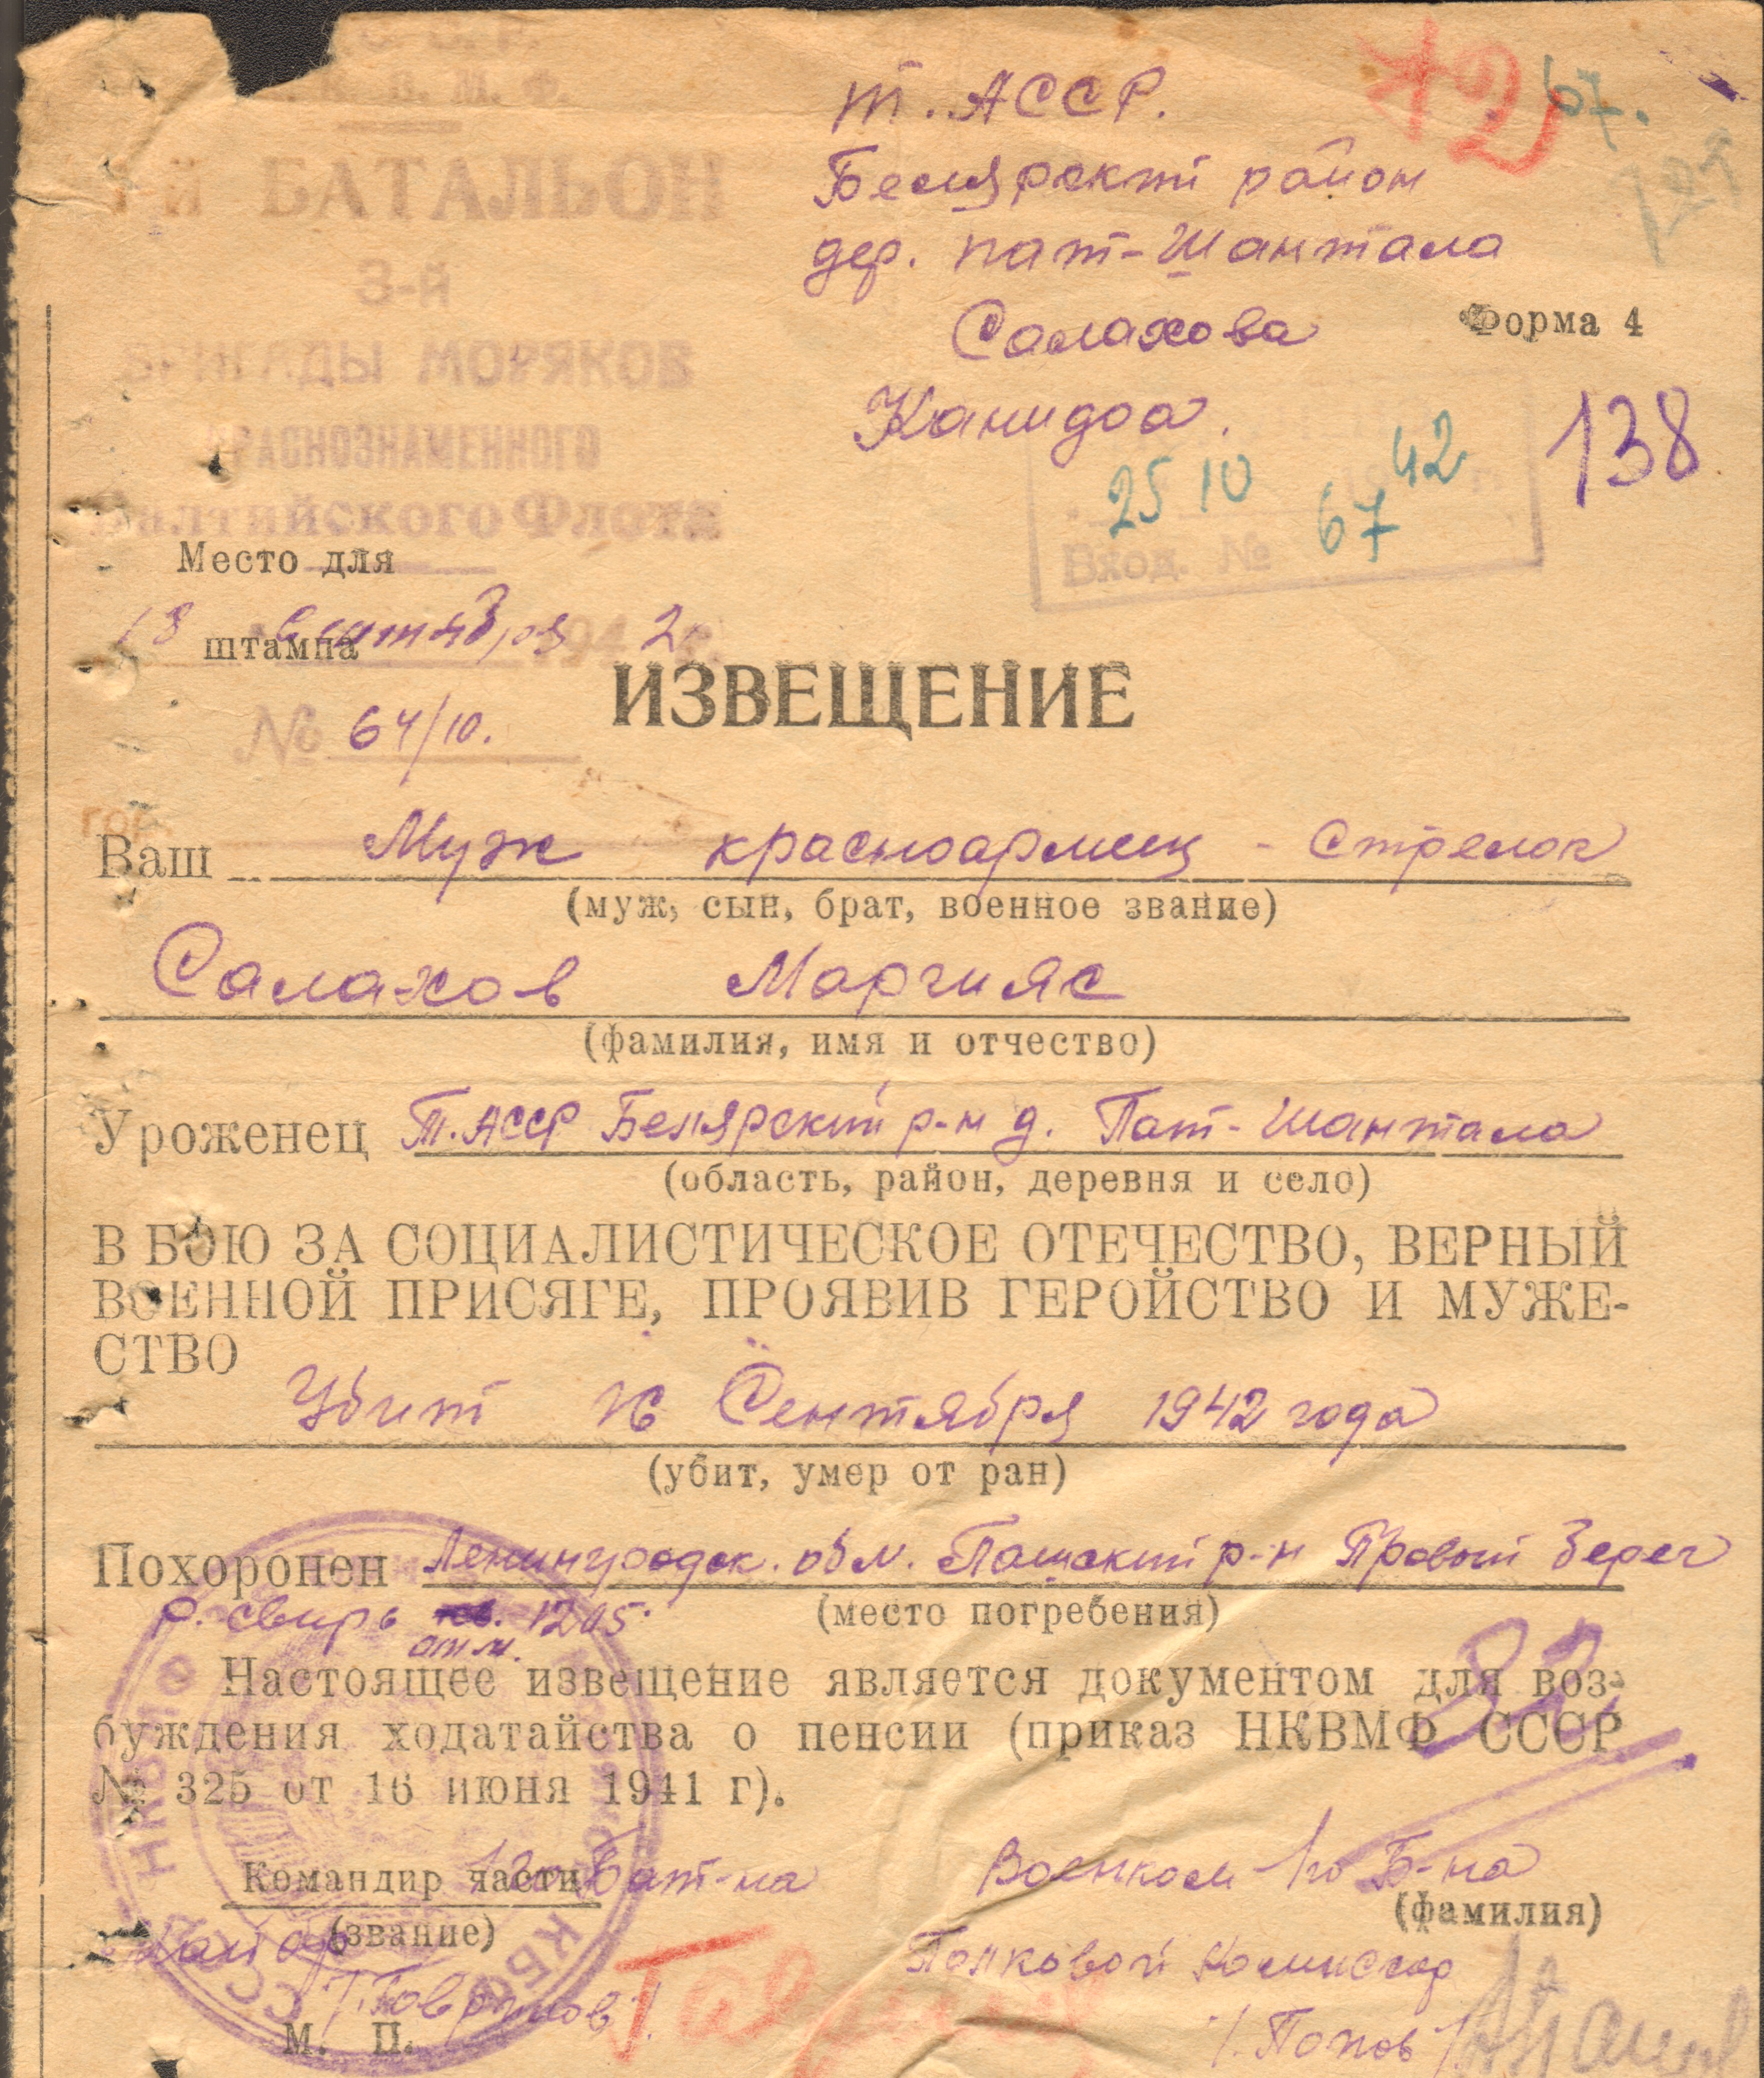 Т. АССР.
Белярский район
дер. Пат-Шантала
Салахова
Форма 4
Камидоа.
138
25 10 42
67
Вход. №
БАТАЛЬОН
3-й
БРИГАДЫ МОРЯКОВ
КРАСНОЗНАМЕННОГО
Балтийского Флота
Место для
штампа
13 Сентября 1942 г.
№ 64/10.
гор.
ИЗВЕЩЕНИЕ
Ваш Муж красноармеец - Стрелок
(муж, сын, брат, военное звание)
Салахов Маргияс
(фамилия, имя и отчество)
Уроженец Т.АССР Белярский р-н д. Пат-Шантала
(область, район, деревня и село)
В БОЮ ЗА СОЦИАЛИСТИЧЕСКОЕ ОТЕЧЕСТВО, ВЕРНЫЙ
ВОЕННОЙ ПРИСЯГЕ, ПРОЯВИВ ГЕРОЙСТВО И МУЖЕ-
СТВО
Убит 16 Сентября 1942 года
(убит, умер от ран)
Похоронен Ленинградск. обл. Пашский р-н Правый берег
р. Свирь отм. 12.05
(место погребения)
Настоящее извещение является документом для воз-
буждения ходатайства о пенсии (приказ НКВМФ СССР
№ 325 от 16 июня 1941 г).
Командир части 1го Бат-на
Военком 1го Б-на
(звание)
(фамилия)
Майор
Полковой Комиссар
М. П.
/.Попов/